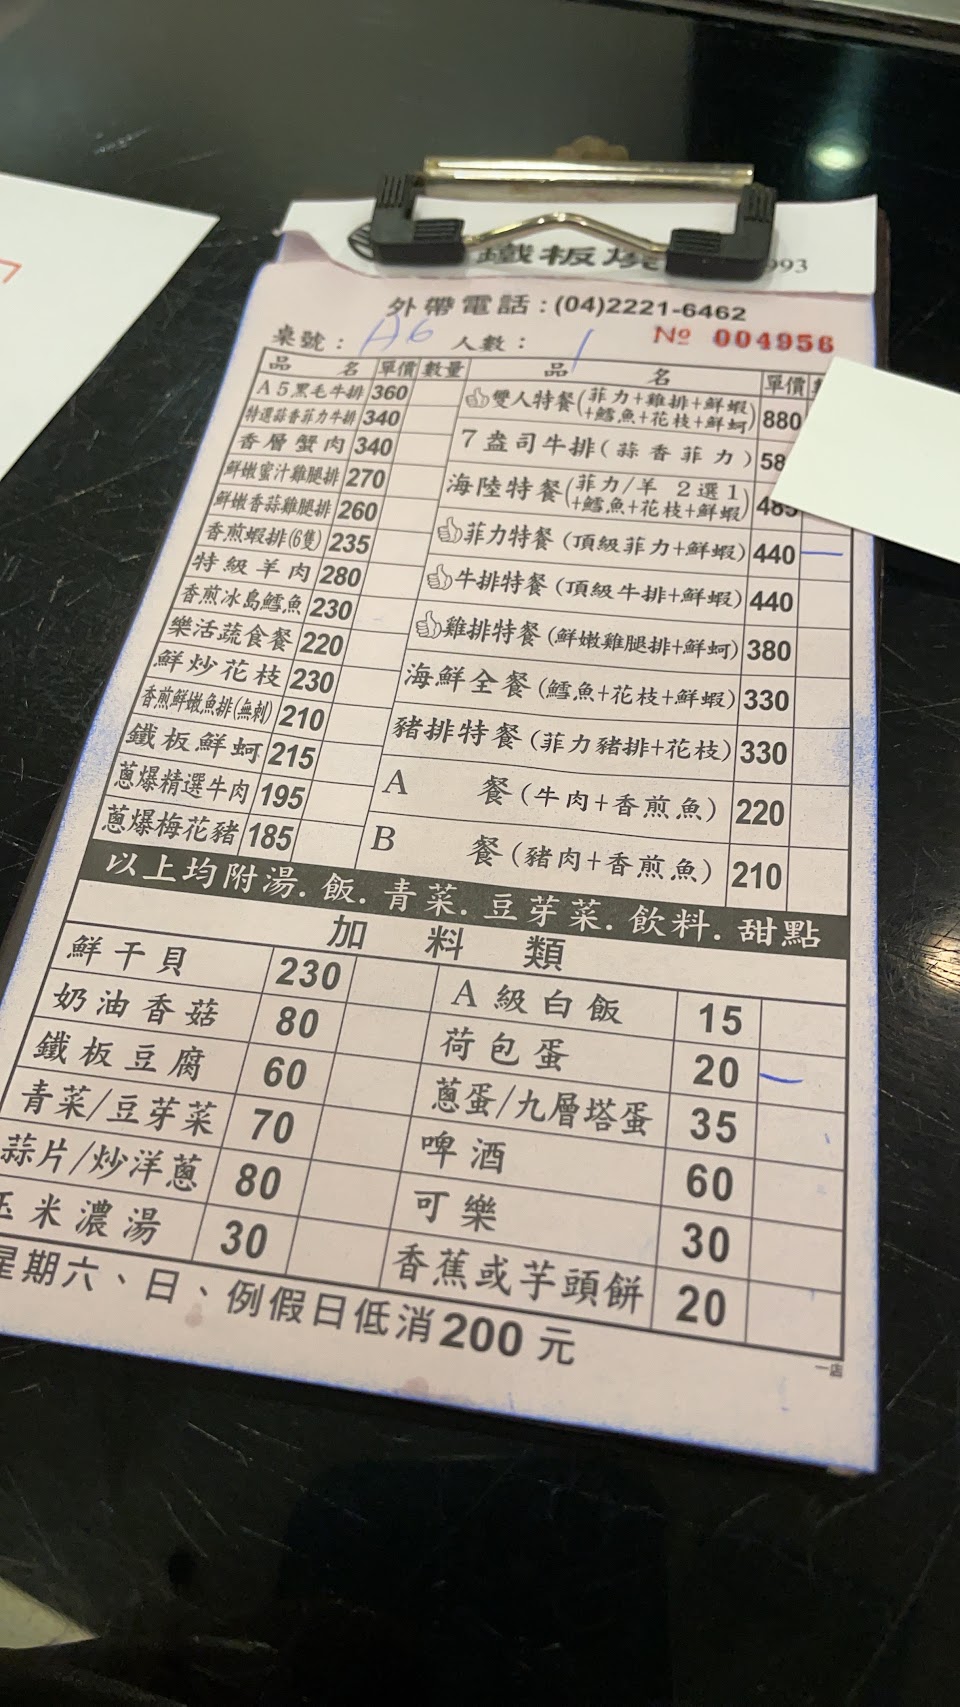 鐵板燒
993
外帶電話:(04)2221-6462
桌號： A6 人數： 1 № 004956
品名 單價 數量 品名 單價
A5黑毛牛排 360
特選蒜香菲力牛排 340
香層蟹肉 340
鮮嫩蜜汁雞腿排 270
鮮嫩香蒜雞腿排 260
香煎蝦排(6隻) 235
特級羊肉 280
香煎冰島鱈魚 230
樂活蔬食餐 220
鮮炒花枝 230
香煎鮮嫩魚排(無刺) 210
鐵板鮮蚵 215
蔥爆精選牛肉 195
蔥爆梅花豬 185
雙人特餐(菲力+雞排+鮮蝦
+鱈魚+花枝+鮮蚵) 880
7盎司牛排(蒜香菲力) 58
海陸特餐(菲力/羊 2選1
+鱈魚+花枝+鮮蝦) 485
菲力特餐(頂級菲力+鮮蝦) 440 一
牛排特餐(頂級牛排+鮮蝦) 440
雞排特餐(鮮嫩雞腿排+鮮蚵) 380
海鮮全餐(鱈魚+花枝+鮮蝦) 330
豬排特餐(菲力豬排+花枝) 330
A 餐(牛肉+香煎魚) 220
B 餐(豬肉+香煎魚) 210
以上均附湯.飯.青菜.豆芽菜.飲料.甜點
加料類
鮮干貝 230
奶油香菇 80
鐵板豆腐 60
青菜/豆芽菜 70
蒜片/炒洋蔥 80
玉米濃湯 30
A級白飯 15
荷包蛋 20 一
蔥蛋/九層塔蛋 35
啤酒 60
可樂 30
香蕉或芋頭餅 20
星期六、日、例假日低消200元
一店